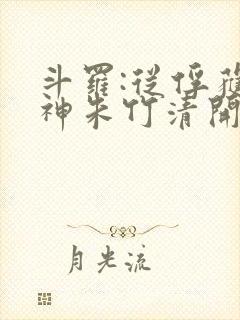 斗羅:從俘獲
神朱竹清開
月光流